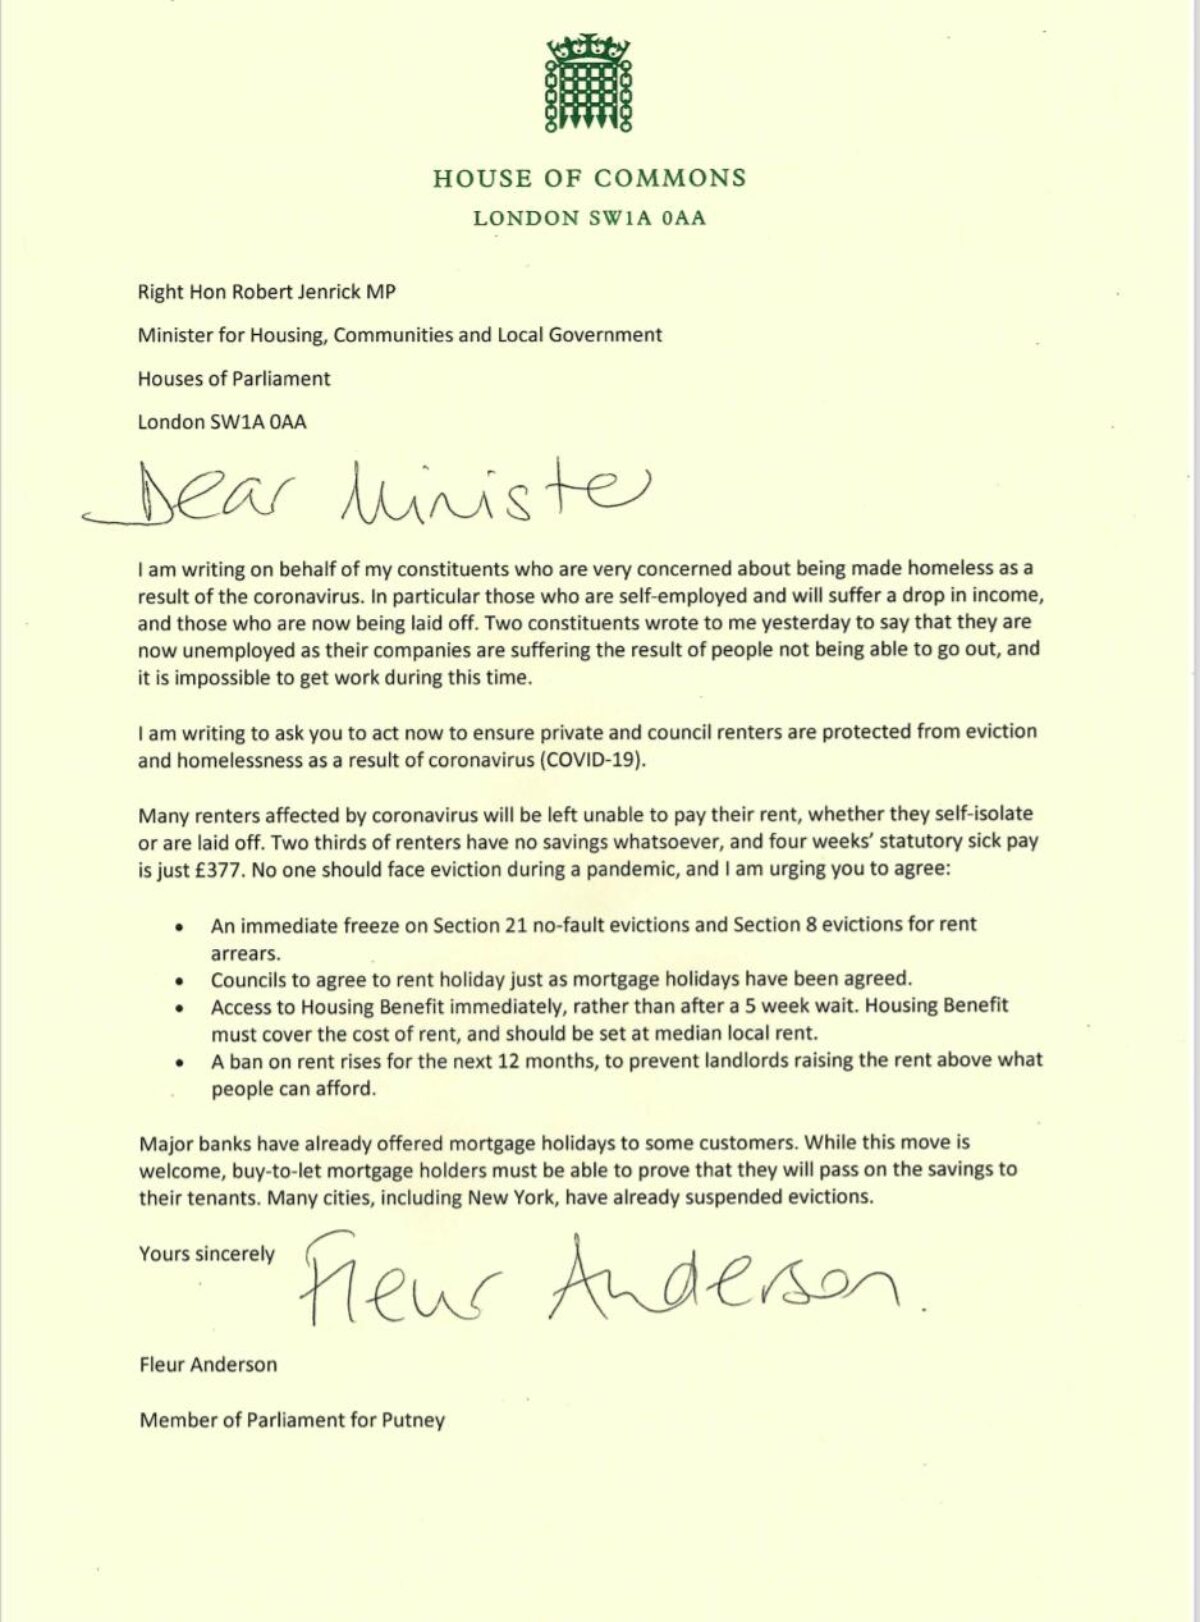 HOUSE OF COMMONS
LONDON SW1A 0AA
Right Hon Robert Jenrick MP
Minister for Housing, Communities and Local Government
Houses of Parliament
London SW1A 0AA
Dear Ministe
I am writing on behalf of my constituents who are very concerned about being made homeless as a
result of the coronavirus. In particular those who are self-employed and will suffer a drop in income,
and those who are now being laid off. Two constituents wrote to me yesterday to say that they are
now unemployed as their companies are suffering the result of people not being able to go out, and
it is impossible to get work during this time.
I am writing to ask you to act now to ensure private and council renters are protected from eviction
and homelessness as a result of coronavirus (COVID-19).
Many renters affected by coronavirus will be left unable to pay their rent, whether they self-isolate
or are laid off. Two thirds of renters have no savings whatsoever, and four weeks' statutory sick pay
is just £377. No one should face eviction during a pandemic, and I am urging you to agree:
• An immediate freeze on Section 21 no-fault evictions and Section 8 evictions for rent
arrears.
• Councils to agree to rent holiday just as mortgage holidays have been agreed.
• Access to Housing Benefit immediately, rather than after a 5 week wait. Housing Benefit
must cover the cost of rent, and should be set at median local rent.
• A ban on rent rises for the next 12 months, to prevent landlords raising the rent above what
people can afford.
Major banks have already offered mortgage holidays to some customers. While this move is
welcome, buy-to-let mortgage holders must be able to prove that they will pass on the savings to
their tenants. Many cities, including New York, have already suspended evictions.
Yours sincerely
Fleur Anderson.
Fleur Anderson
Member of Parliament for Putney